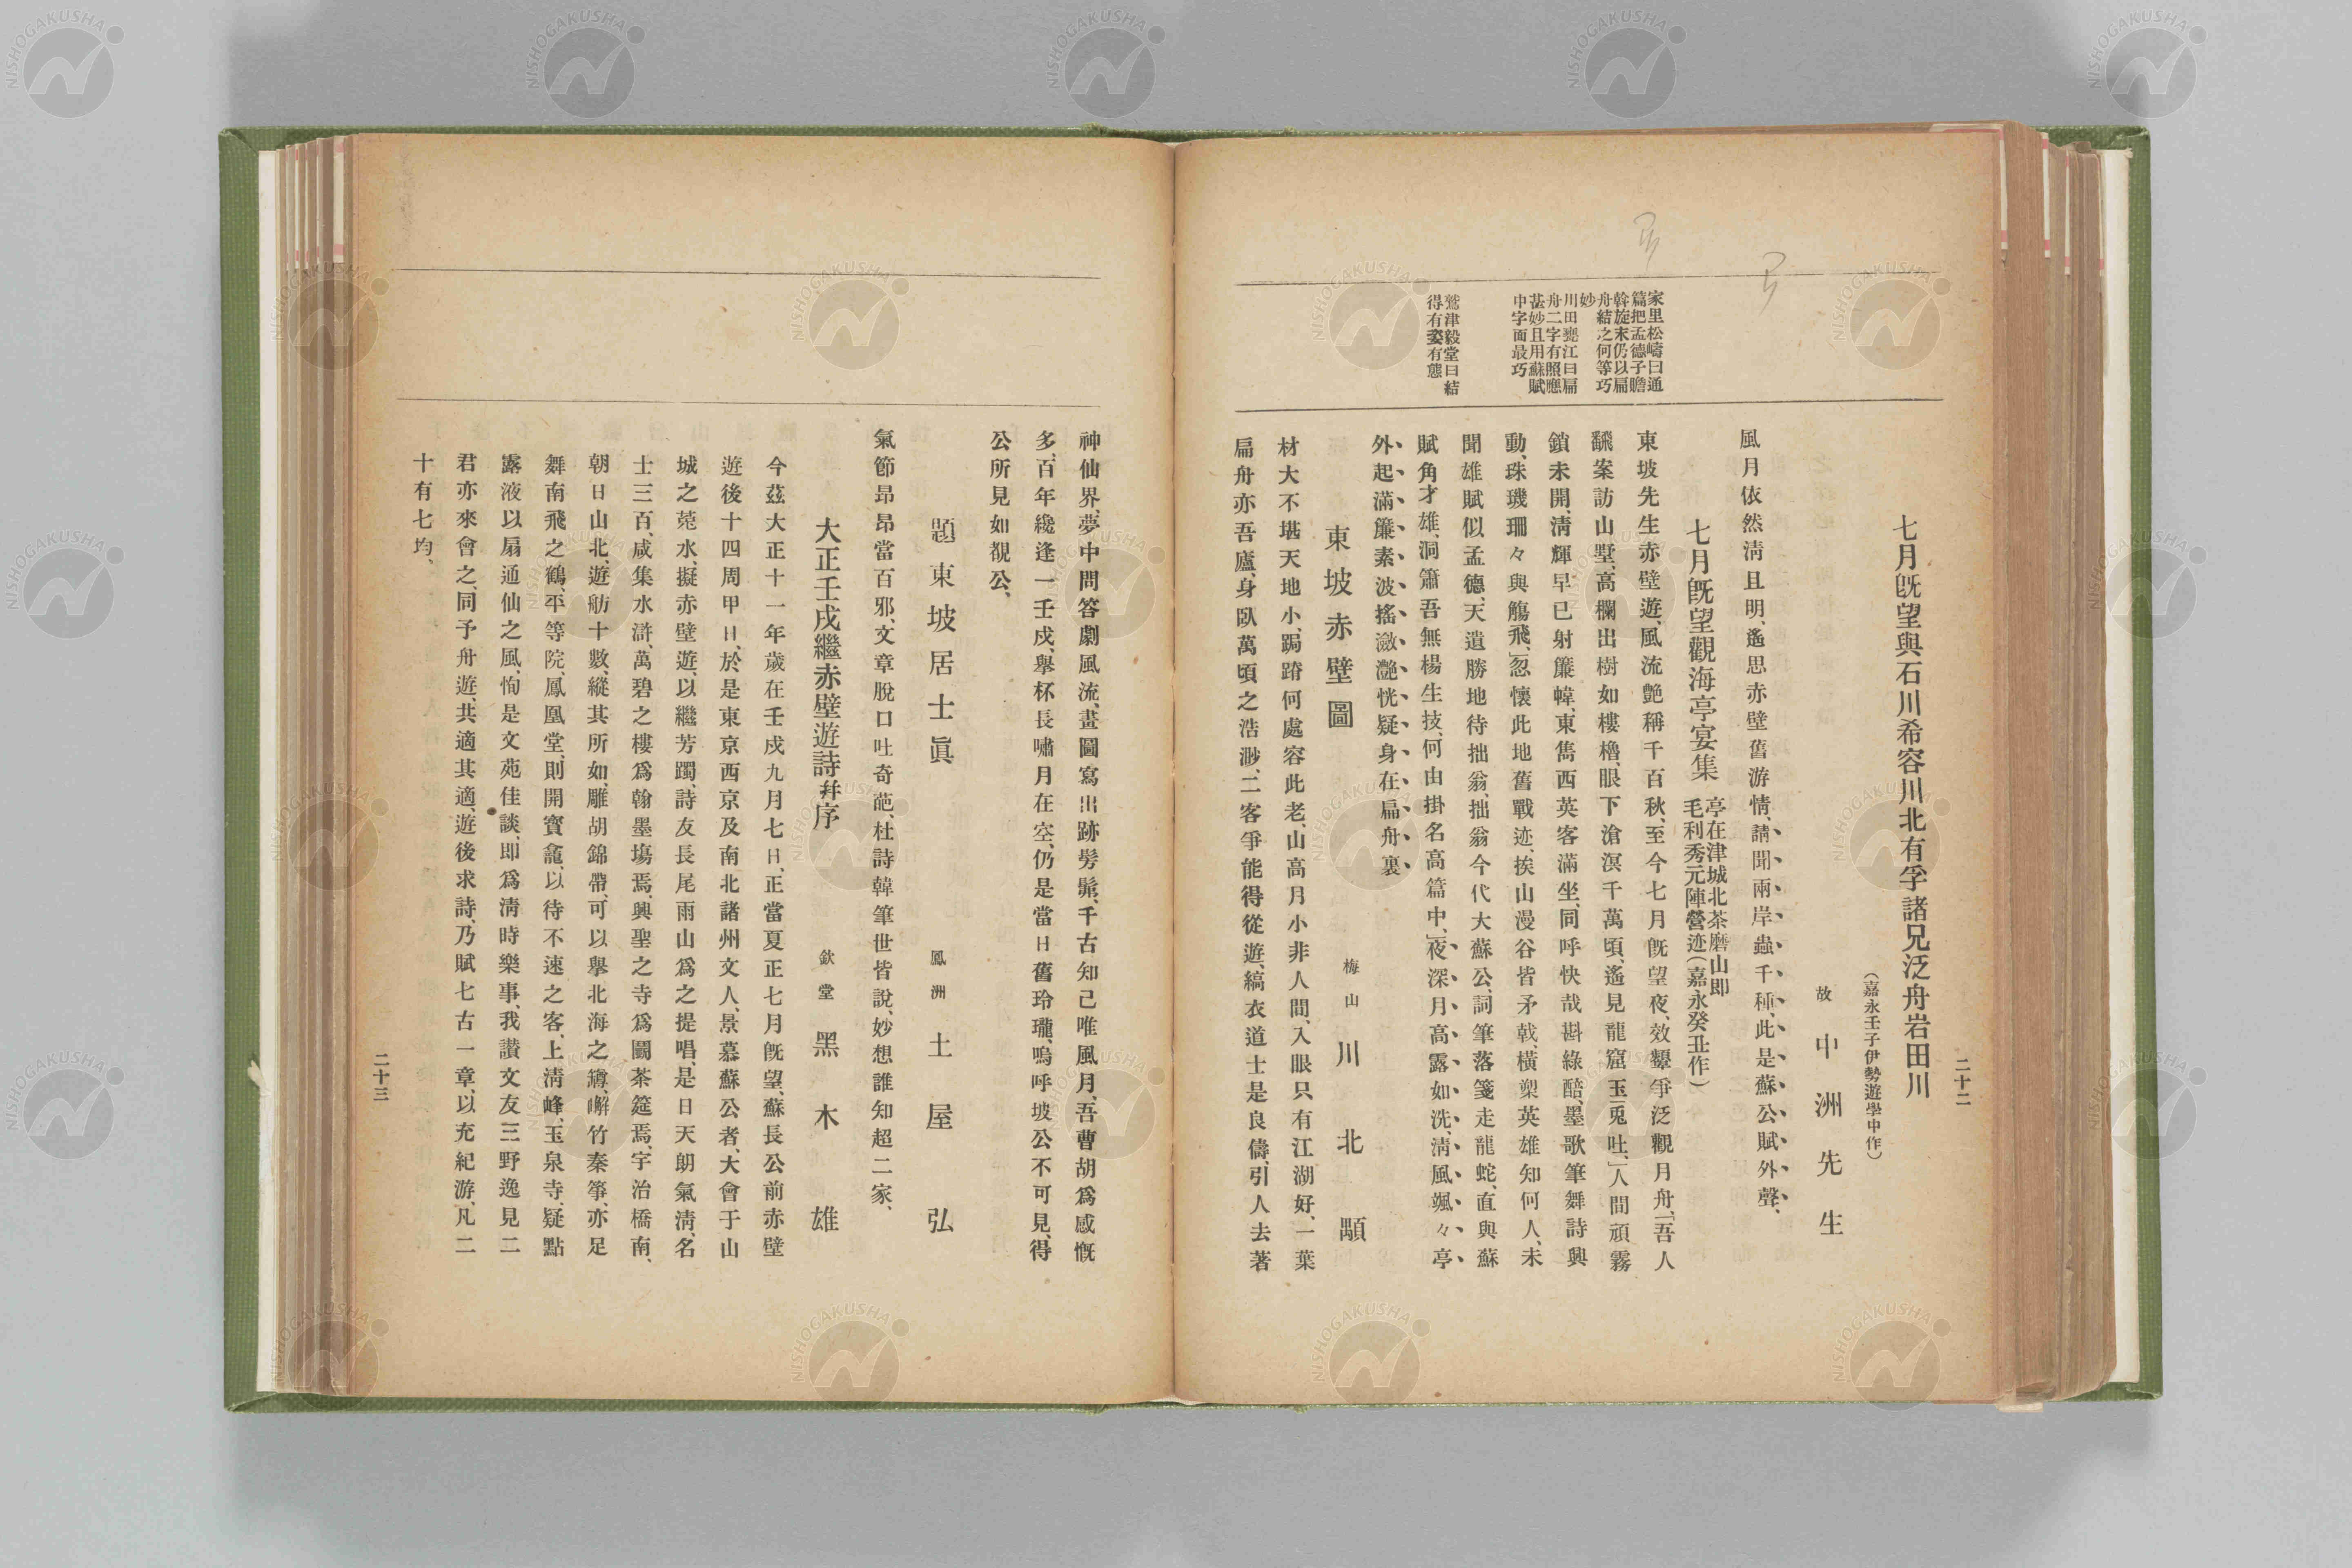 二十二
七月旣望與石川希容川北有孚諸兄泛舟岩田川
（嘉永壬子伊勢遊學中作）
故 中洲先生
風月依然淸且明、遙思赤壁舊游情、請聞兩岸蟲千種、此是蘇公賦外聲、
七月旣望觀海亭宴集 亭在津城北茶磨山即
毛利秀元陣營迹（嘉永癸丑作）
東坡先生赤壁遊、風流艶稱千百秋、至今七月旣望夜、效顰爭泛觀月舟、「吾人
飜案訪山墅、高欄出樹如樓櫓、眼下滄溟千萬頃、遙見龍窟玉兎吐、」人間頑霧
鎖未開、淸輝早已射簾幃、東雋西英客滿坐、同呼快哉斟綠醅、墨歌筆舞詩興
動、珠璣珊々與觴飛、」忽懷此地舊戰迹、挨山漫谷皆矛戟、橫槊英雄知何人、未
聞雄賦似孟德、天遣勝地待拙翁、拙翁今代大蘇公、詞筆落箋走龍蛇、直與蘇
賦角才雄、洞簫吾無楊生技、何由掛名高篇中、」夜深月高露如洗、淸風颯々亭
外起、滿簾素波搖瀲灔、恍疑身在扁舟裏、
家里松嶹曰通
篇把孟德子瞻
斡旋末仍以扁
舟結之何等巧
妙
川田甕江曰扁
舟二字有照應
甚妙且用蘇賦
中字面最巧
鷲津毅堂曰結
得有姿有態
東坡赤壁圖
梅山 川北 顒
材大不堪天地小、跼蹐何處容此老、山高月小非人間、入眼只有江湖好、一葉
扁舟亦吾廬、身臥萬頃之浩渺、二客爭能得從遊、縞衣道士是良儔、引人去著
神仙界、夢中問答劇風流、畫圖寫出跡髣髴、千古知己唯風月、吾曹胡爲感慨
多、百年纔逢一壬戌、擧杯長嘯月在空、仍是當日舊玲瓏、嗚呼坡公不可見、得
公所見如覩公、
題東坡居士眞
鳳洲 土屋 弘
氣節昂昂當百邪、文章脫口吐奇葩、杜詩韓筆世皆說、妙想誰知超二家、
大正壬戌繼赤壁遊詩幷序
欽堂 黑木 雄
今茲大正十一年歲在壬戌九月七日、正當夏正七月旣望、蘇長公前赤壁
遊後十四周甲日、於是東京西京及南北諸州文人、景慕蘇公者、大會于山
城之菟水、擬赤壁遊、以繼芳躅、詩友長尾雨山爲之提唱、是日天朗氣淸、名
士三百、咸集水滸、萬碧之樓爲翰墨塲焉、興聖之寺爲鬭茶筵焉、宇治橋南、
朝日山北、遊舫十數、縱其所如、雕胡錦帶、可以擧北海之罇、嶰竹秦箏、亦足
舞南飛之鶴、平等院、鳳凰堂、則開寶龕、以待不速之客、上淸峰、玉泉寺、疑點
露液以扇通仙之風、恂是文苑佳談、即爲淸時樂事、我讃文友三野逸見二
君亦來會之、同予舟遊、共適其適、遊後求詩、乃賦七古一章、以充紀游、凡二
十有七均、
二十三